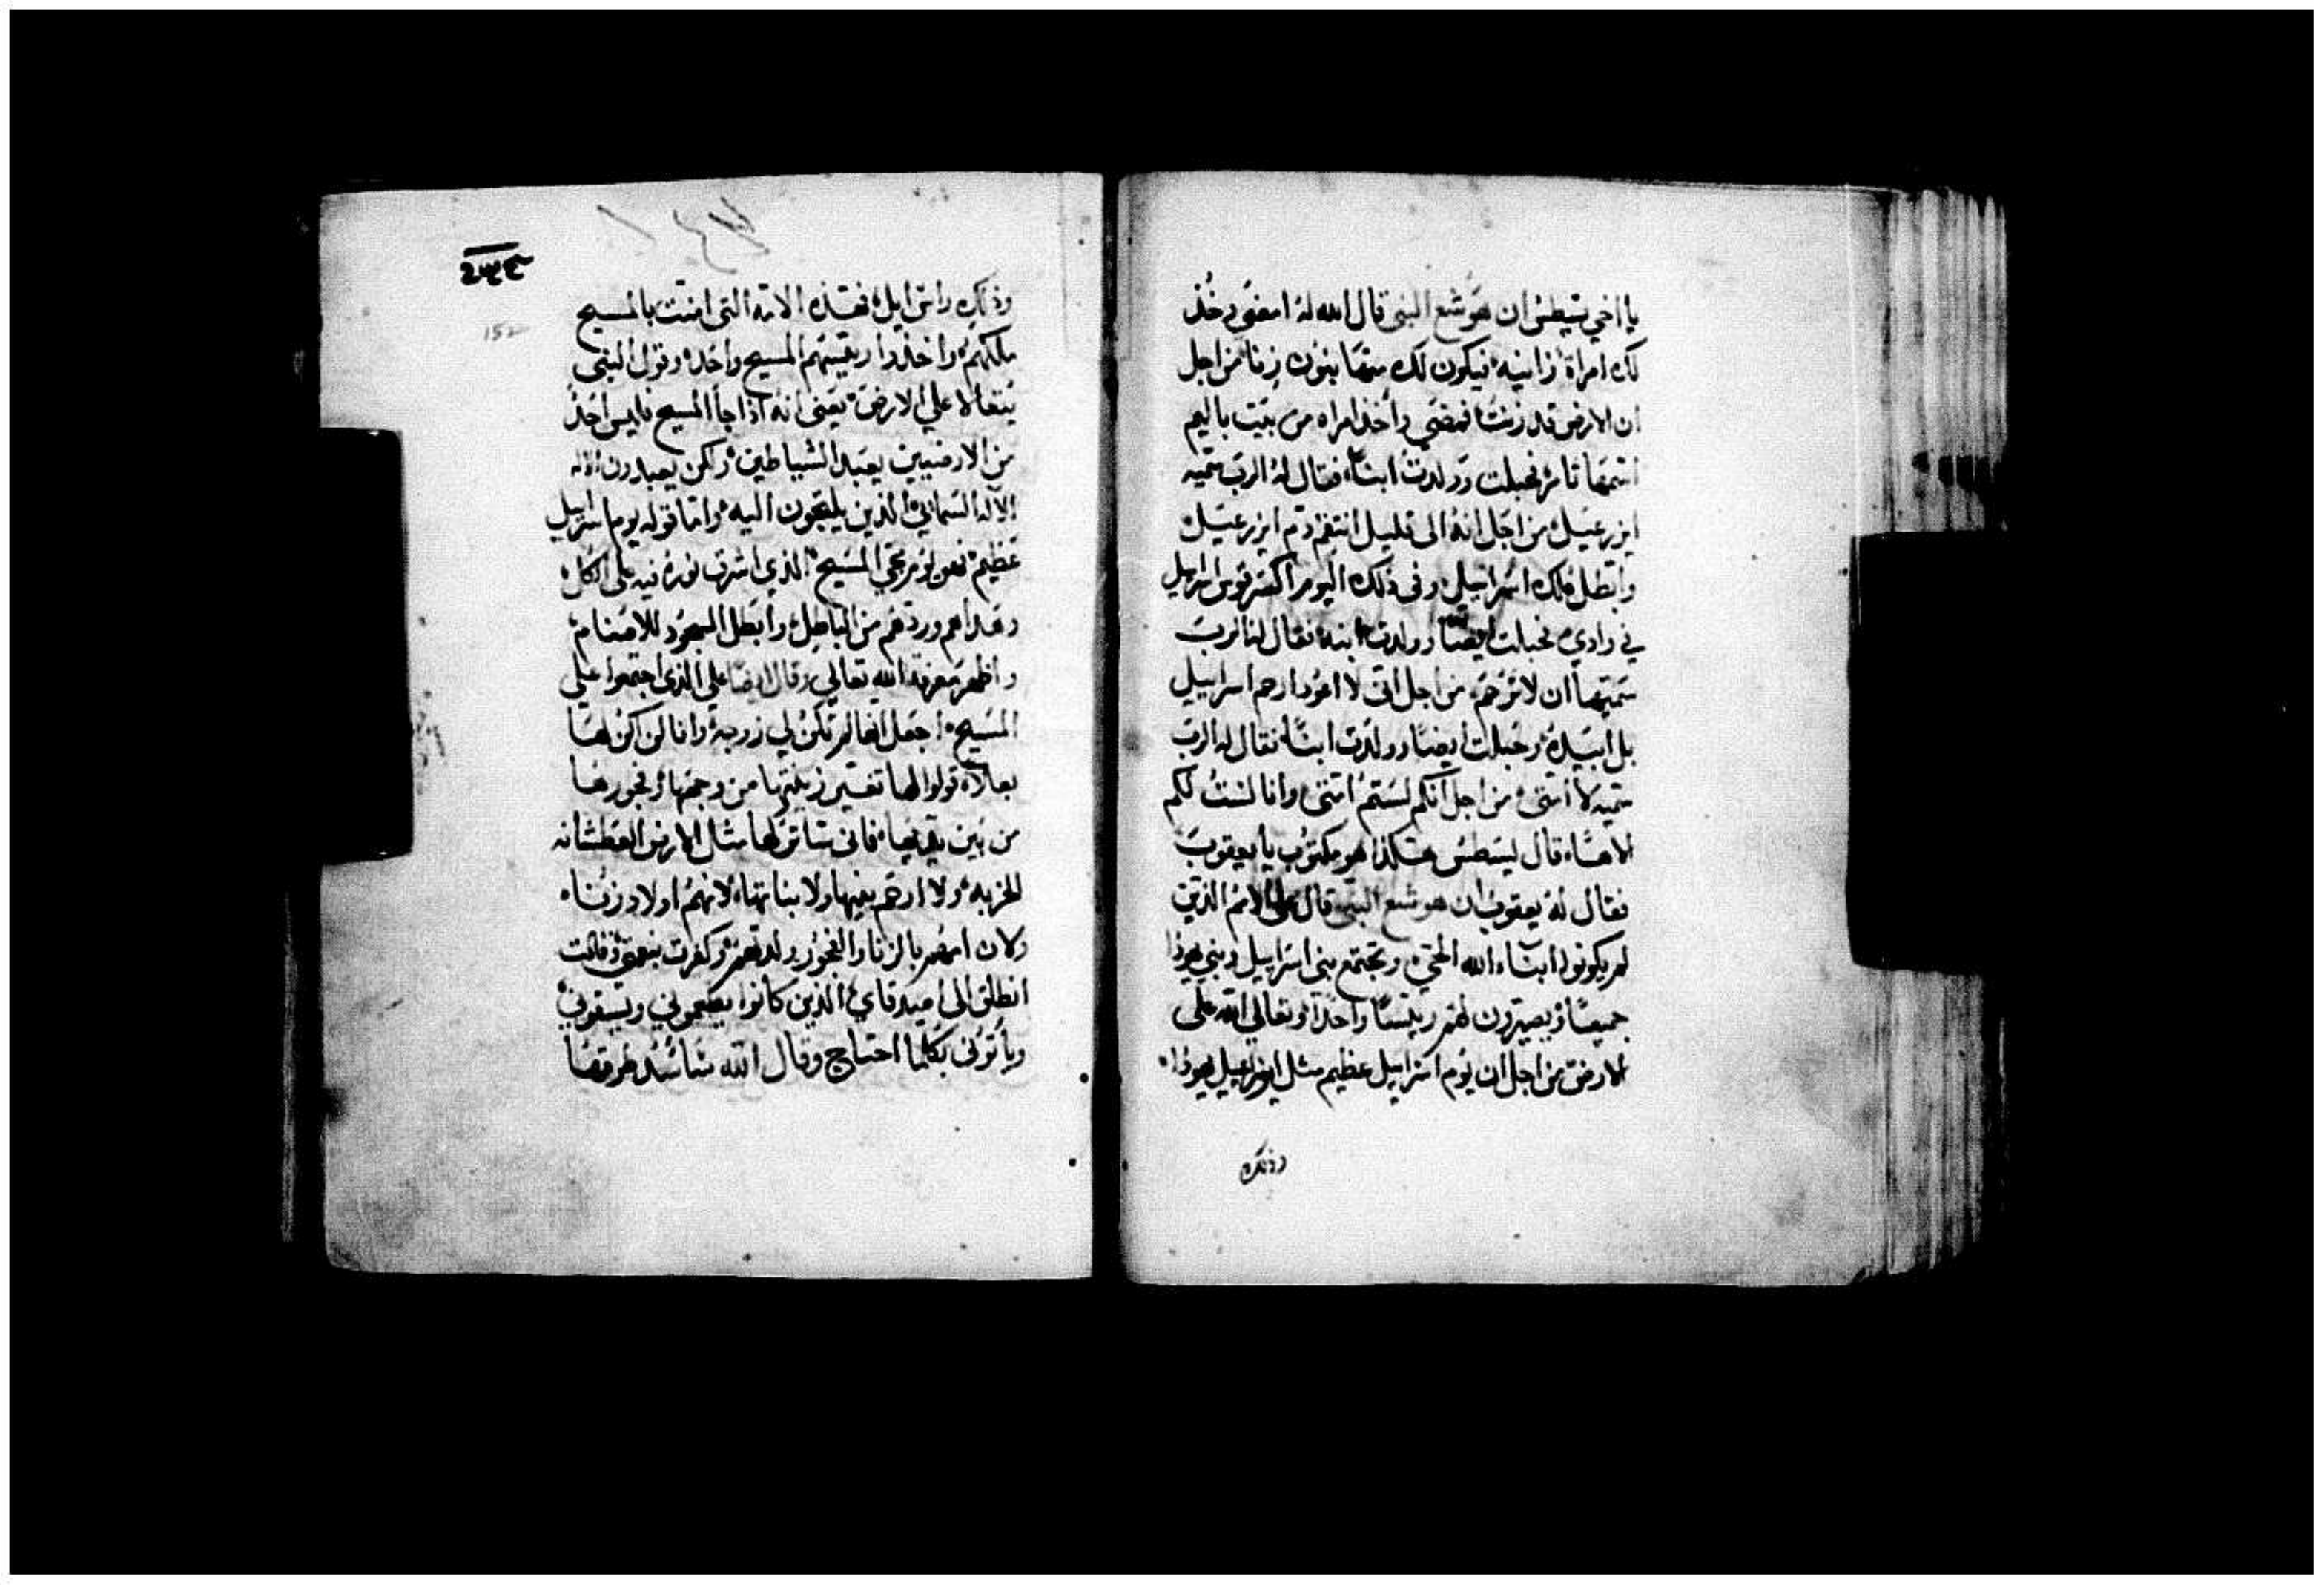 يا اخي يسطس ان هوشع النبي قال الله له امضي وخذ
لك امراة زانيه فيكون لك منها بنون زنا من اجل
ان الارض قد زنت فمضي واخذ امراه من بيت باليم
اسمها ثامر فحبلت وولدت ابنا فقال له الرب سميه
ايزرعيل من اجل انه الى قليل انتقم دم ايزرعيل
وابطل ملك اسراييل وفي ذلك اليوم اكسر قوس اسراييل
في وادي فحبلت ايضا وولدت ابنه فقال لنا الرب
سميها ان لا ترحم من اجل اني لا اعود ارحم اسراييل
بل ابيده وحبلت ايضا وولدت ابنا فقال له الرب
سميه لا امتي من اجل انكم لستم امتي وانا لست لكم
الاها قال يسطس هكذا هو مكتوب يا يعقوب
فقال له يعقوب ان هوشع النبي قال على الامم الذين
لم يكونوا ابناء الله الحي وتجتمع بني اسراييل وبني يهوذا
جميعا ويصيرون لهم رييسا واحدا وتعالي الله على
الارض من اجل ان يوم اسراييل عظيم مثل ايزراعيل يهوذا
وذلك
152
وذلك واسراييل فهذه الامة التي امنت بالمسيح
ملكهم واخذوا رييسهم المسيح واحد وقول النبي
يتعالا علي الارض يعني انه اذا جا المسيح فليس احد
من الارضيين يعبد الشياطين ولكن يعبدون الاله
الاله السمائي الذين يلتجون اليه واما قوله يوم اسراييل
عظيم فهو يوم مجي المسيح الذي اشرق نوره فيه على الكل
وهداهم وردهم من الباطل وابطل السجود للاصنام
واظهر معرفة الله تعالي وقال ايضا على الذي اجتمعوا علي
المسيح اجعل انها لم تكن لي زوجة وانا لن اكن لها
بعلا قولوا لها تغير زينتها من وجهها وفجورها
من بين يديها فاني ساتركها مثل الارض العطشانه
الخربه ولا ارحم بنيها ولا بناتها لانهم اولاد زناء
ولان امهم بالزنا والفجور ولدتهم وكفرت بنعمتي وقالت
انطلق الى اصدقاي الذين كانوا يطعموني ويسقوني
وياتوني بكلما احتاج وقال الله ساسد طرقها